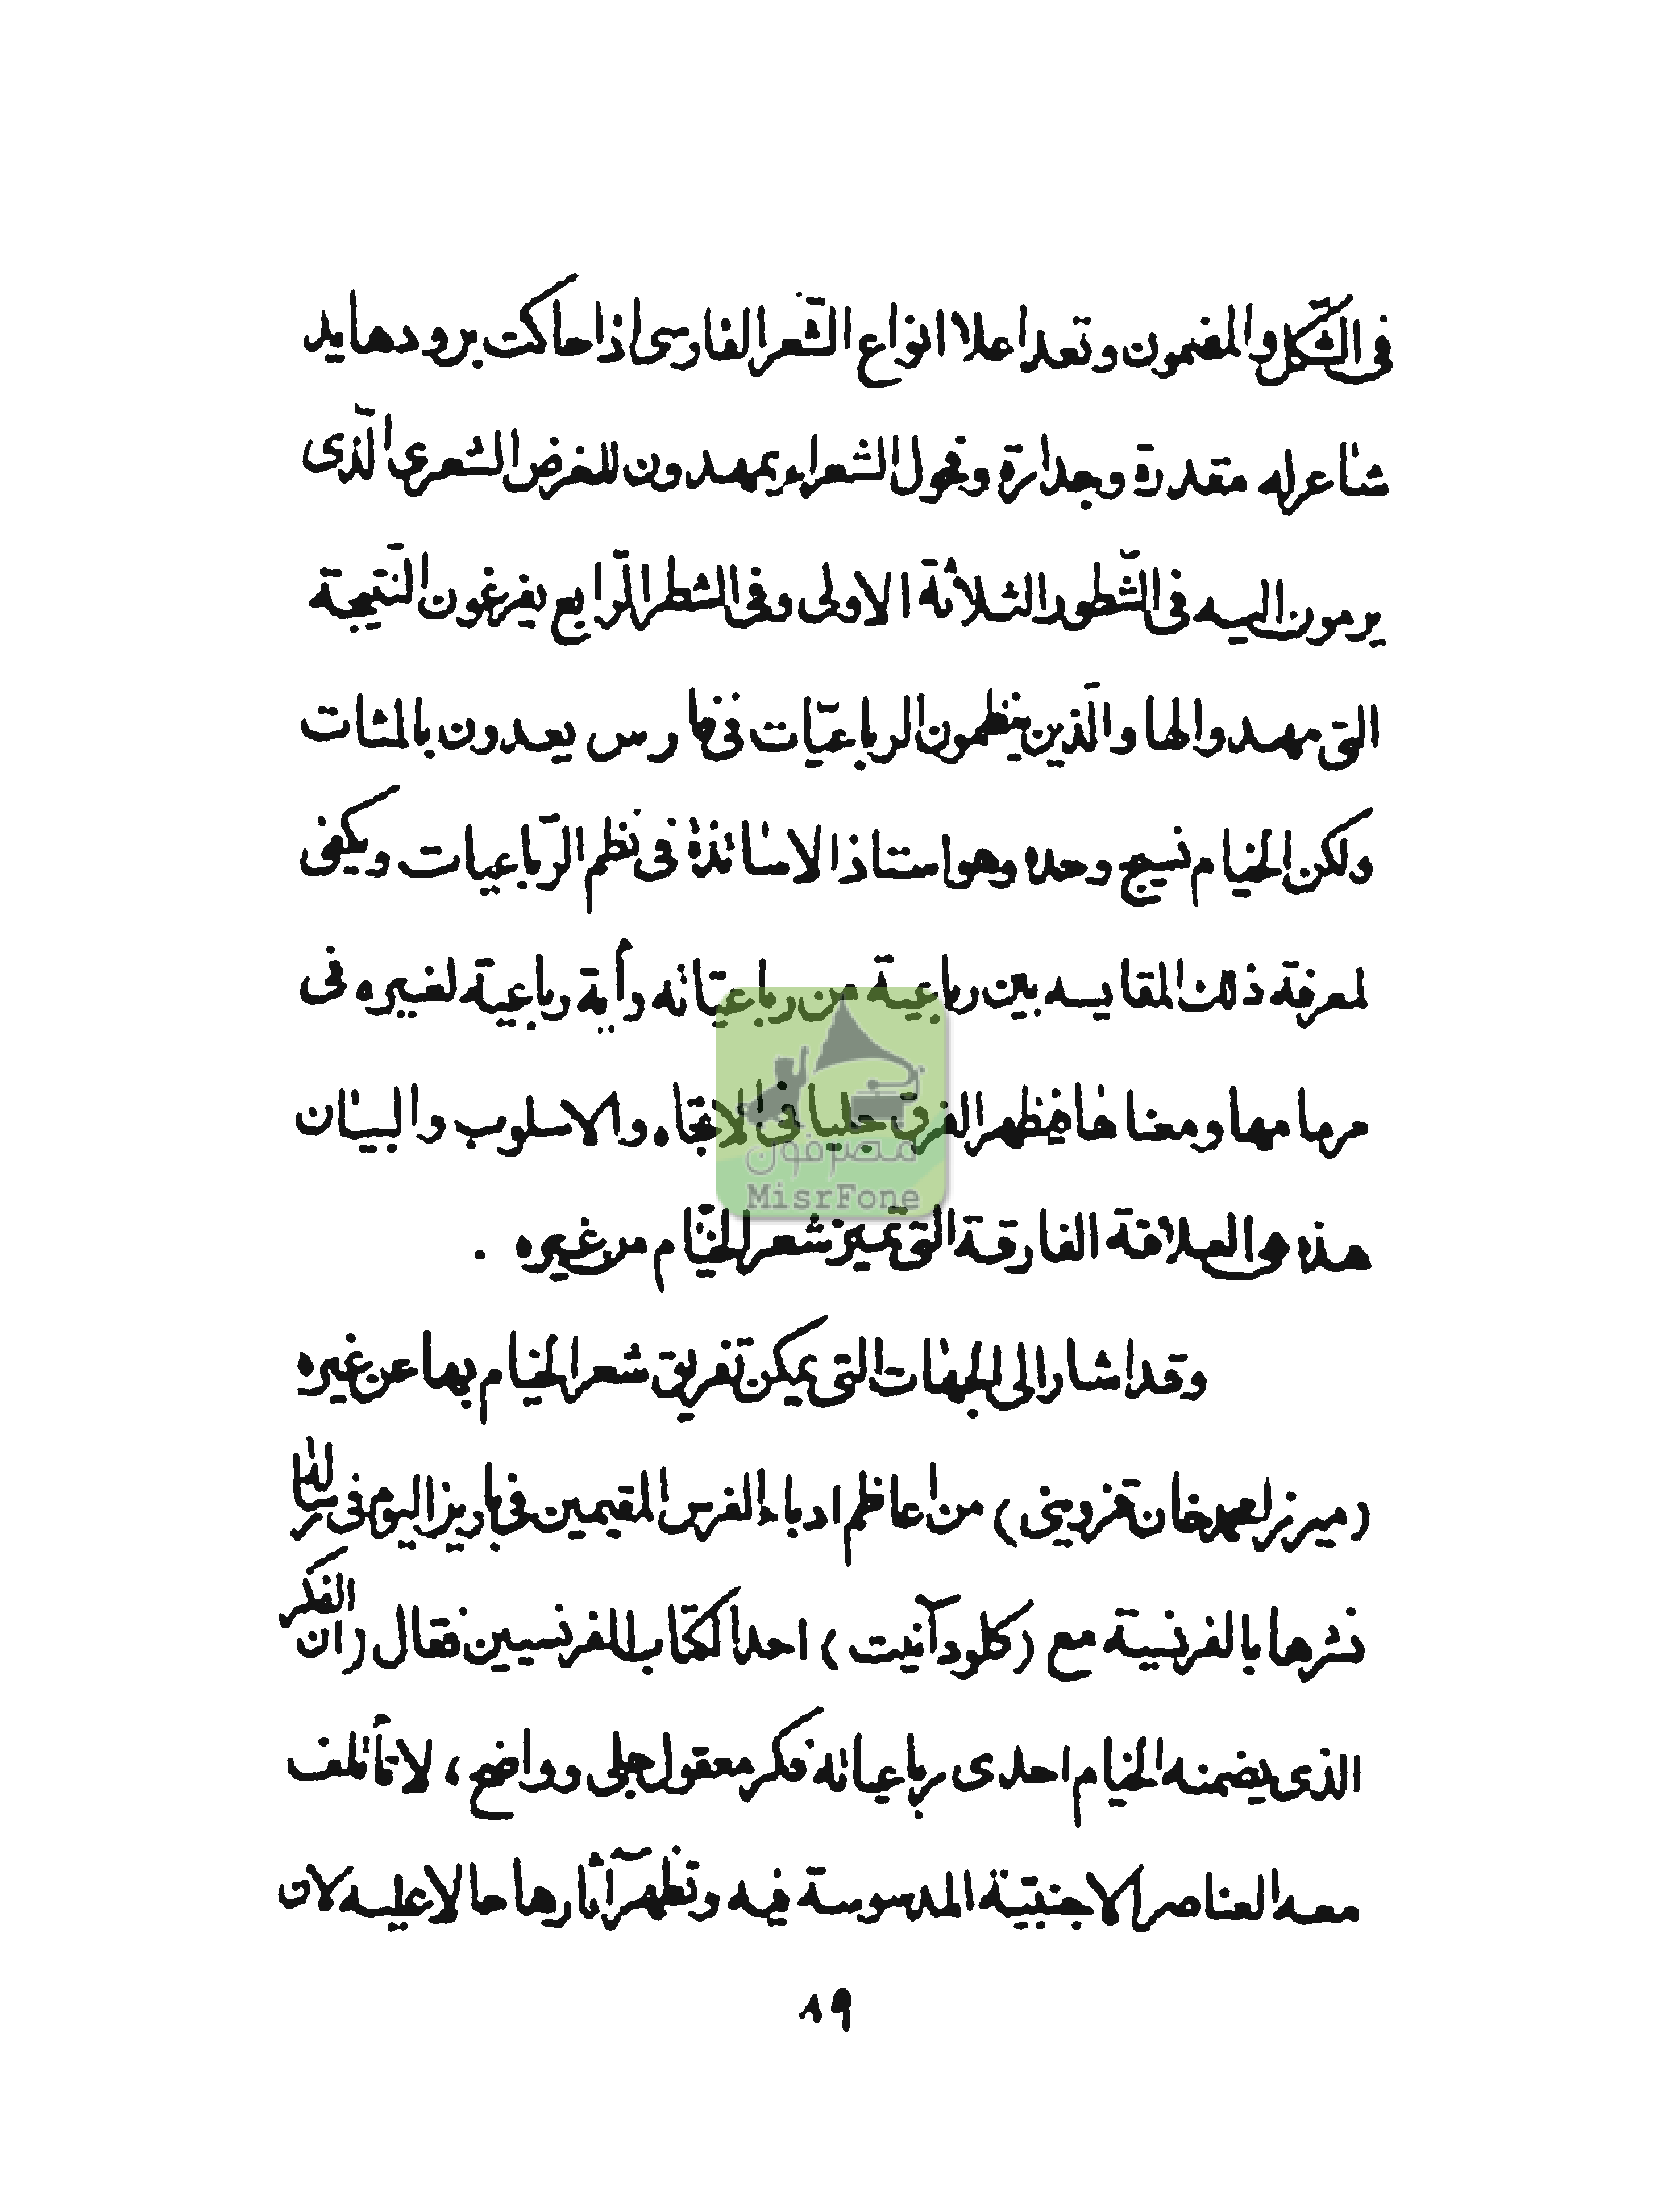 فى الشّكل والمضمون وتعد اعلا انواع الشّعر الفارسى اذا حاكت برودها يد
شاعر له مقدرة وجدارة وفحول الشعراء يمهدون للغرض الشعرى الّذى
يرمون اليه فى الشّطور الثلاثة الاولى وفى الشطر الرّابع يفرغون النّتيجة
التى مهدوا لها والّذين ينظمون الرباعيّات فى فارس يعدون بالمئات
ولكن الخيام نسيج وحده وهو استاذ الاساتذة فى نظم الرّباعيات ويكفى
لمعرفة ذلك المقايسه بين رباعية من رباعيتاته وأية رباعية لغيره فى
مرماها ومعناها فيظهر الفرق جليا فى الاتجاه والاسلوب والبيان
هذه هى العلاقة الفارقة التّى تميز شعر الخيّام من غيره .
وقد اشار الى الجهات التى يمكن تفريق شعر الخيام بها عن غيره
(ميرزا محمد خان قزوينى) من اعاظم ادباء الفرس المقيمين فى باريز اليوم فى رسالة
نشرها بالفرنسية مع (كلود آنيت) احد الكتّاب الفرنسيين فقال (ان الفكر
الذى يضمنه الخيام احدى رباعياته فكر معقول جلى وواضح، لا تأتلف
معه العناصر الاجنبيّة المدسوسة فيه وتظهر آثارها حالا عليه لان
٨٩
مصرفون
MisrFone